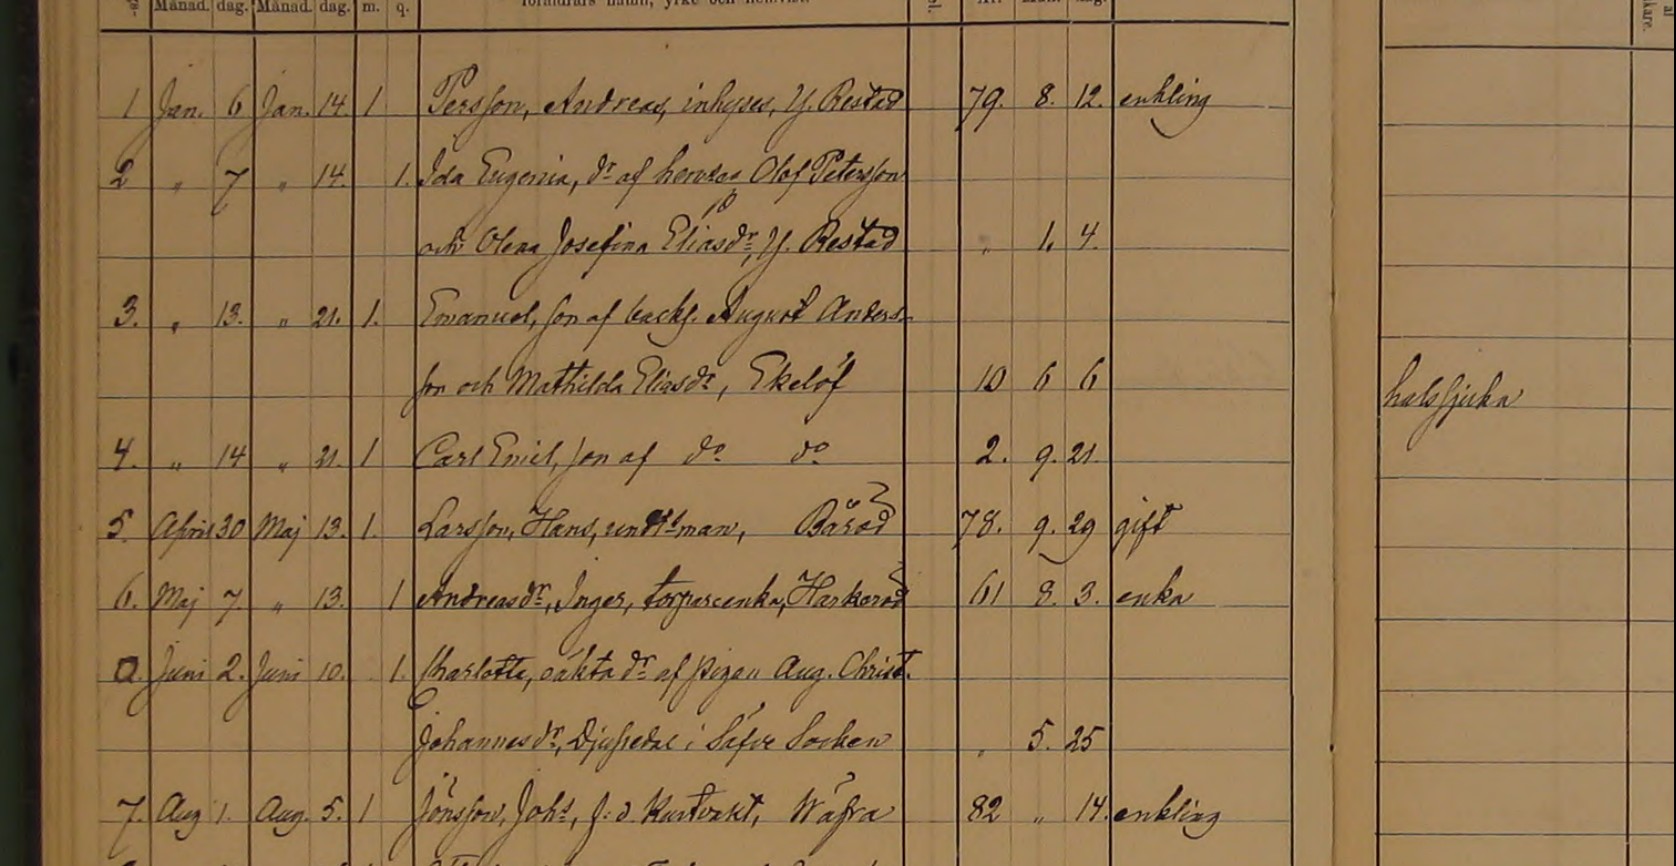 Månad. dag. Månad. dag. m. q.
1 Jan. 6 Jan. 14. 1 Persson, Andreas, inhyses, Y. Restad 79. 8. 12. enkling
2 " 7 " 14. 1. Ida Eugenia, dr af Olof Petersson
och Olena Josefina Eliasdr, Y. Restad " 1. 4.
3. " 13. " 21. 1. Emanuel, son af backs. August Anders-
son och Mathilda Eliasdr, Ekelöf 10 6 6 halssjuka
4. " 14 " 21. 1 Carl Emil, son af do do 2. 9. 21.
5. April 30 Maj 13. 1. Larsson, Hans, undtsman, Båröd 78. 9. 29 gift
6. Maj 7. " 13. 1 Andreasdr, Inger, torpareenka, Harkeröd 61 8. 3. enka
0. Juni 2. Juni 10. 1. Charlotta, oäkta dr af pigan Aug. Christ.
Johannesdr, i Säfve Socken " 5. 25
7. Aug 1. Aug. 5. 1 Jönsson, Johs, f. d. Kustvakt, Wäfra 82 " 14. enkling